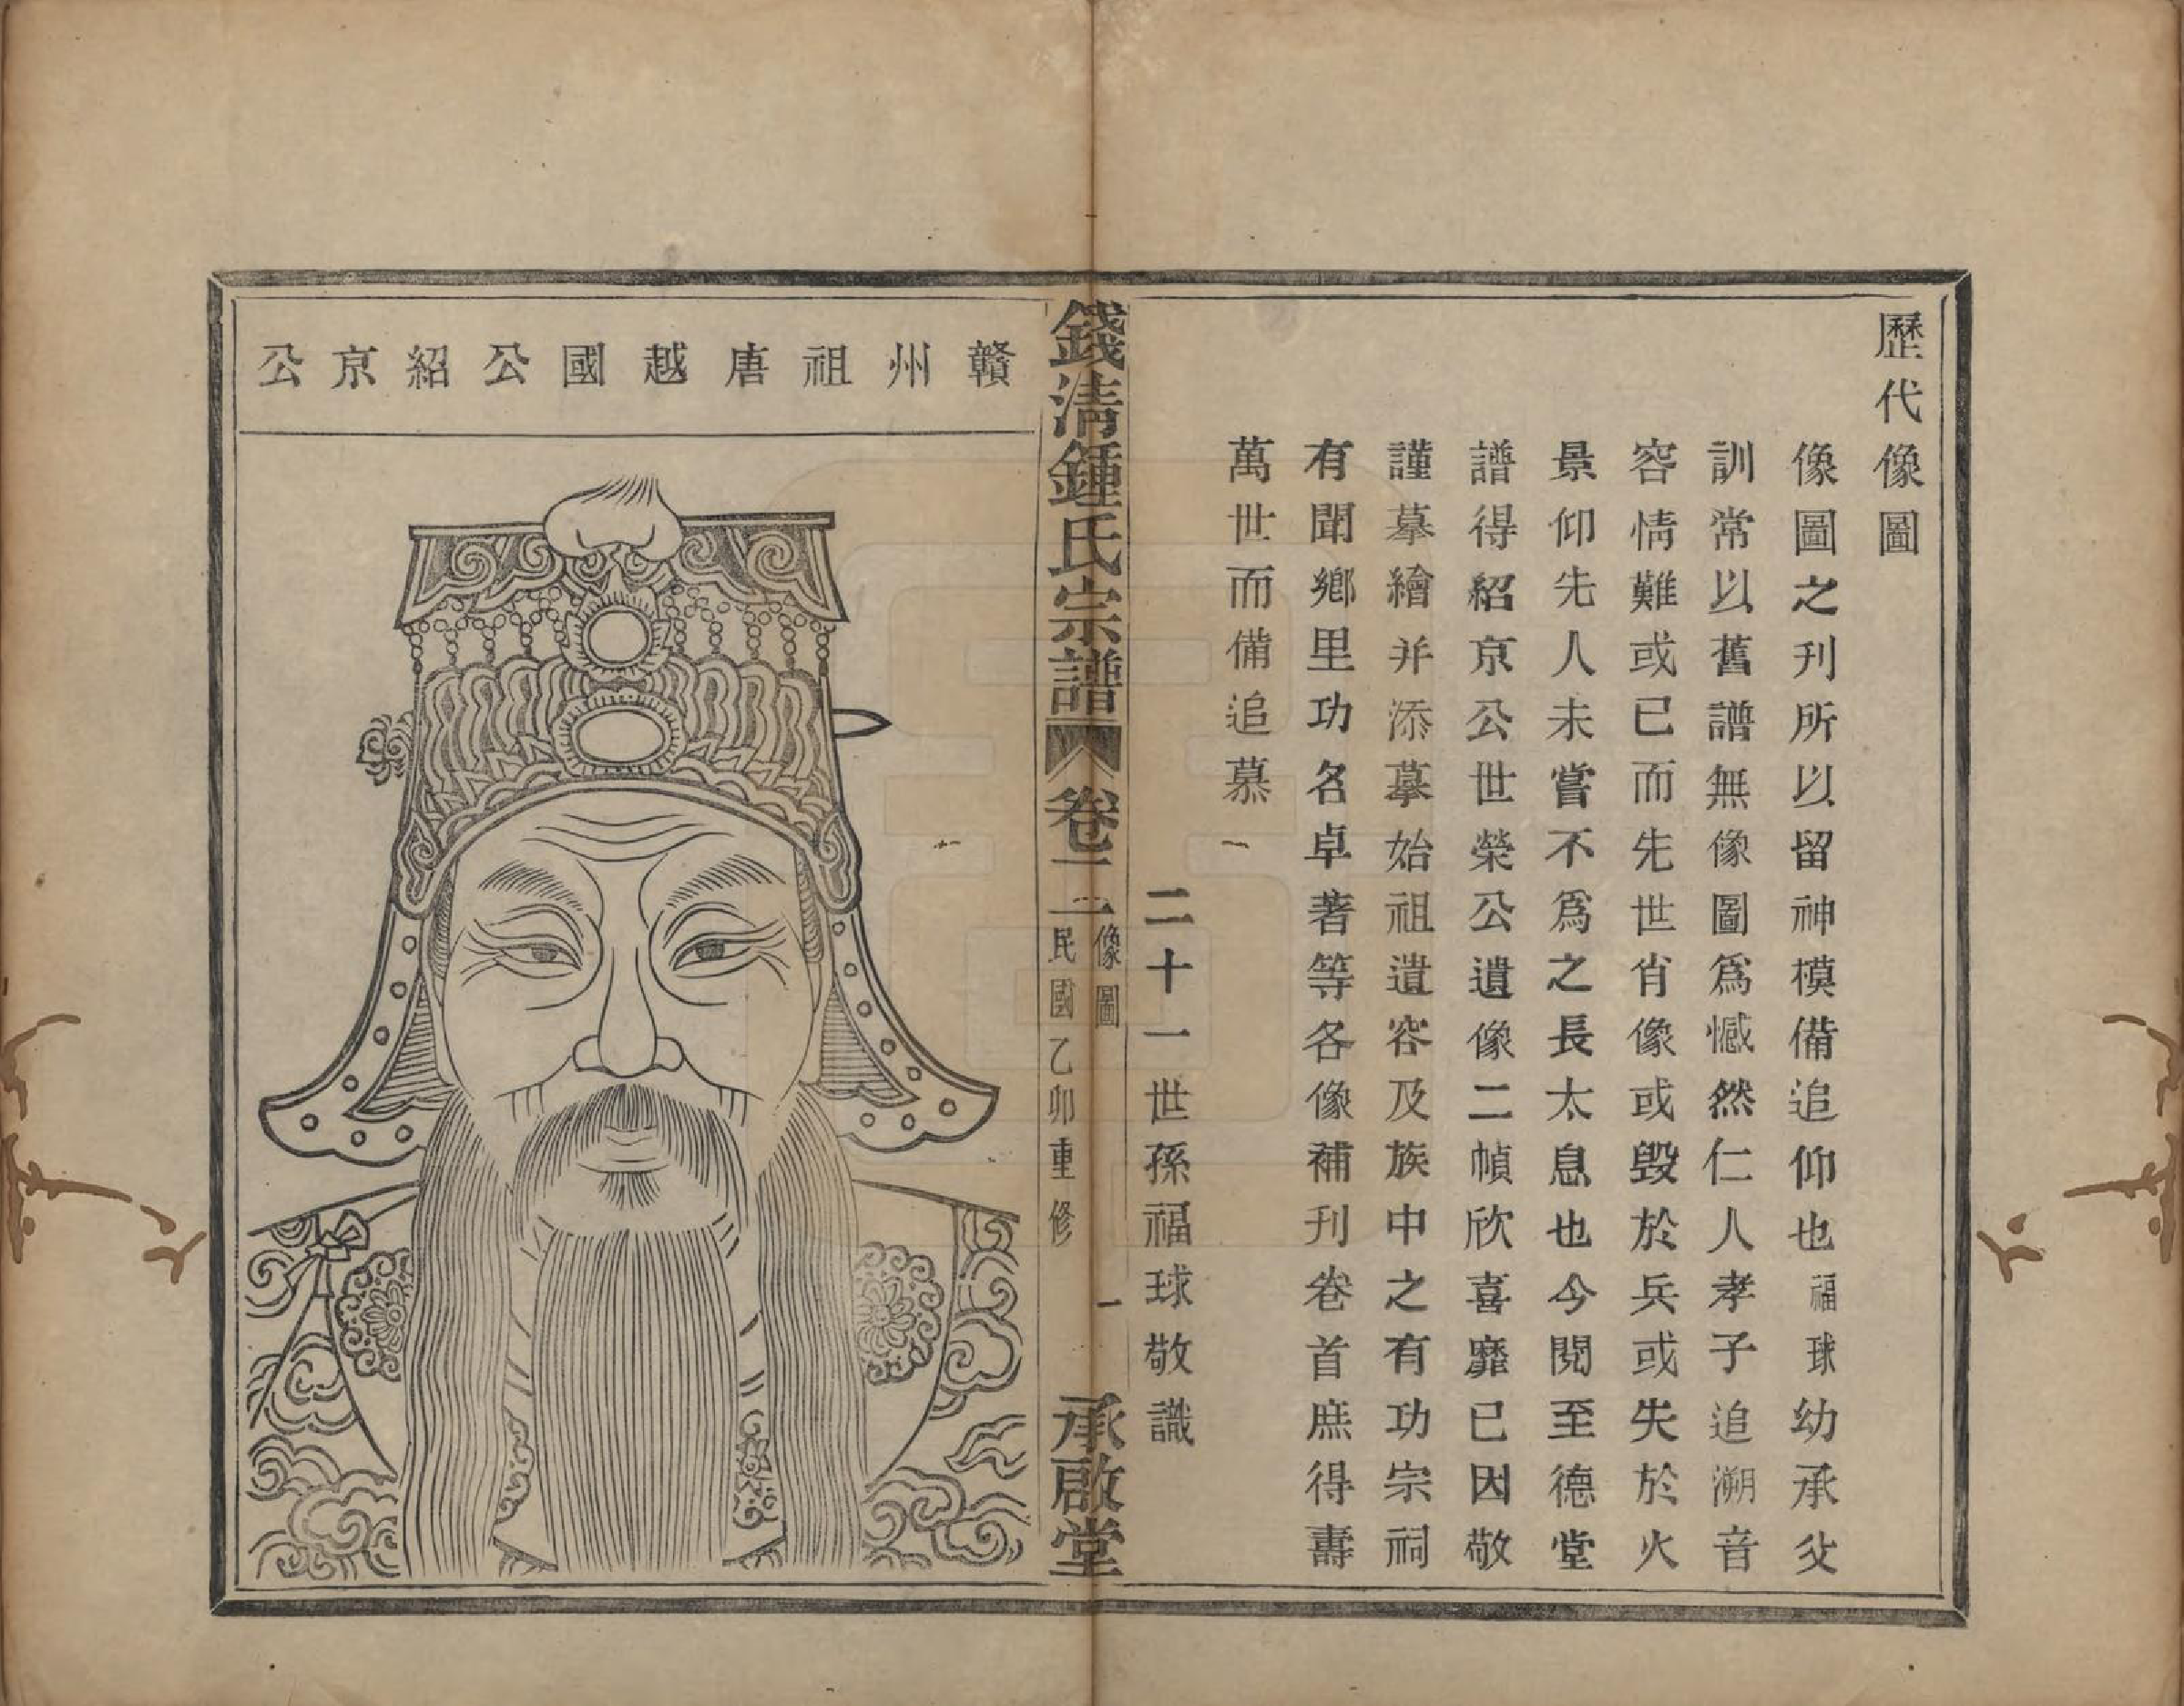 歷代像圖
像圖之刊所以留神模備追仰也福球幼承父
訓常以舊譜無像圖爲憾然仁人孝子追溯音
容情難或已而先世肖像或毀於兵或失於火
景仰先人未嘗不爲之長太息也今閱至德堂
譜得紹京公世榮公遺像二幀欣喜靡已因敬
謹摹繪并添摹始祖遺容及族中之有功宗祠
有聞鄉里功名卓著等各像補刊卷首庶得壽
萬世而備追慕
二十一世孫福球敬識
錢清鍾氏宗譜
卷一
像圖
一
民國乙卯重修
承啟堂
贛州祖唐越國公紹京公